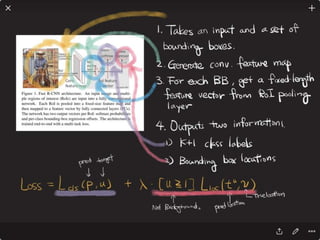 Figure 1. Fast R-CNN architecture. An input image and multi-
ple regions of interest (RoIs) are input into a fully convolutional
network. Each RoI is pooled into a fixed-size feature map and
then mapped to a feature vector by fully connected layers (FCs).
The network has two output vectors per RoI: softmax probabilities
and per-class bounding-box regression offsets. The architecture is
trained end-to-end with a multi-task loss.
1. Takes an input and a set of
bounding boxes.
2. Generate conv. feature map
3. For each BB, get a fixed-length
feature vector from RoI pooling
layer
4. Outputs two information
1) K+1 class labels
2) Bounding box locations
pred target
Loss = Lcls(p,u) + λ·[u≥1] Lloc(tᵘ,v)
Not Background.
pred location
true location